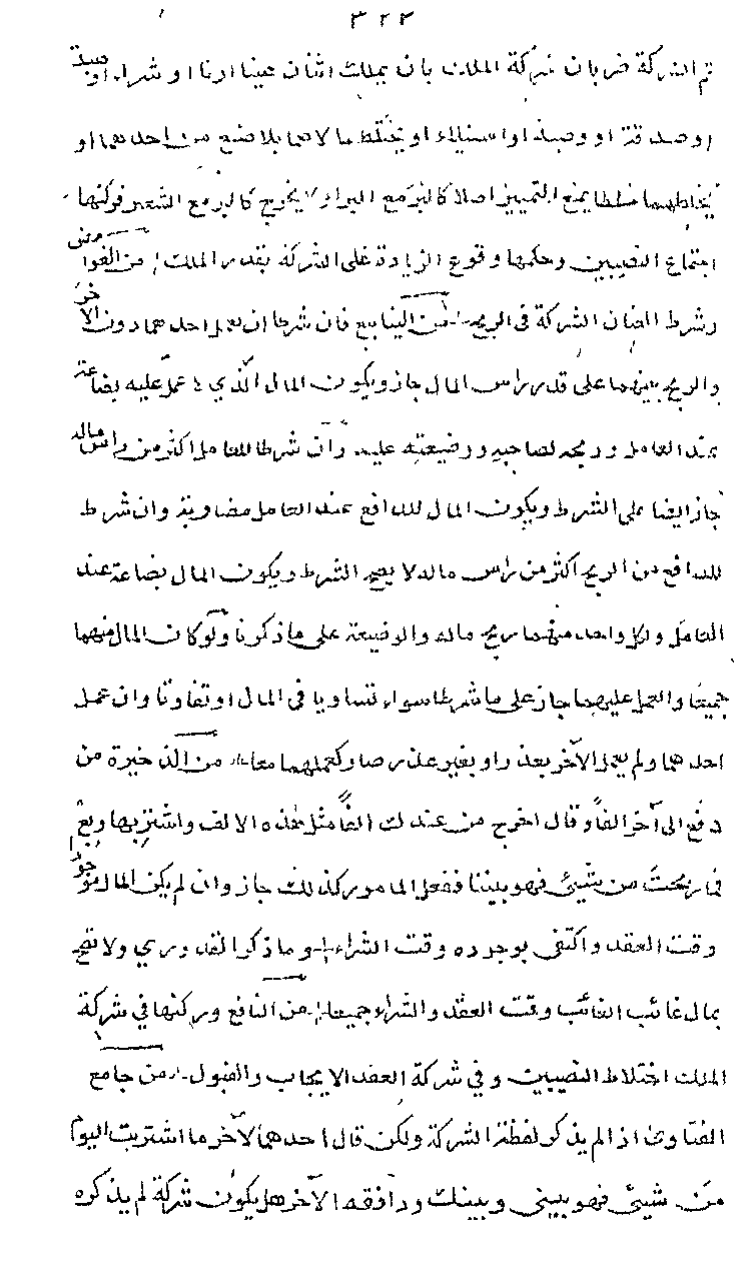 ٣٢٣
ثم الشركة ضربان شركة الملك بان يملك اثنان عينا ارثا او شراء او هبة
او صدقة او وصية او استيلاء او يختلط مالاهما بلا صنع من احدهما او
يخلطهما خلطا يمنع التمييز اصلا كالبر مع البر او لا يخرج كالبر مع الشعير فركنها
اجتماع النصيبين وحكمها وقوع الزيادة على الشركة بقدر الملك من
وشرط الشركة فى الربح من الينابيع فان شرطا ان يعمل احدهما دون الآخر
والربح بينهما على قدر راس المال جاز ويكون المال الذي عمل عليه بضاعة
عند العامل وربحه لصاحبه ووضيعته عليه وان شرطا للعامل اكثر من راس ماله
جاز ايضا على الشرط ويكون المال للدافع عند العامل مضاربة وان شرط
للدافع من الربح اكثر من راس ماله لا يصح الشرط ويكون المال بضاعة عند
العامل ولكل واحد منهما ربح ماله والوضيعة على ما ذكرنا ولو كان المال منهما
جميعا والعمل عليهما جاز على ما شرطا سواء تساويا فى المال او تفاوتا وان عمل
احدهما ولم يعمل الآخر بعذر او بغير عذر صار كعملهما معا من الذخيرة من
دفع الى آخر الفا وقال اخرج من عندك الفا مثل هذه الالف واشتر بها وبع
فما ربحت من شيئ فهو بيننا ففعل المامور كذلك جاز وان لم يكن المال موجودا
وقت العقد واكتفى بوجوده وقت الشراء وما ذكر القدوري ولا تصح
بمال غائب الغائب وقت العقد والشراء جميعا من النافع وركنها في شركة
الملك اختلاط النصيبين وفي شركة العقد الايجاب والقبول من جامع
الفتاوى اذا لم يذكر لفظة الشركة ولكن قال احدهما لآخر ما اشتريت اليوم
من شيئ فهو بيني وبينك ووافقه الآخر هل يكون شركة لم يذكره